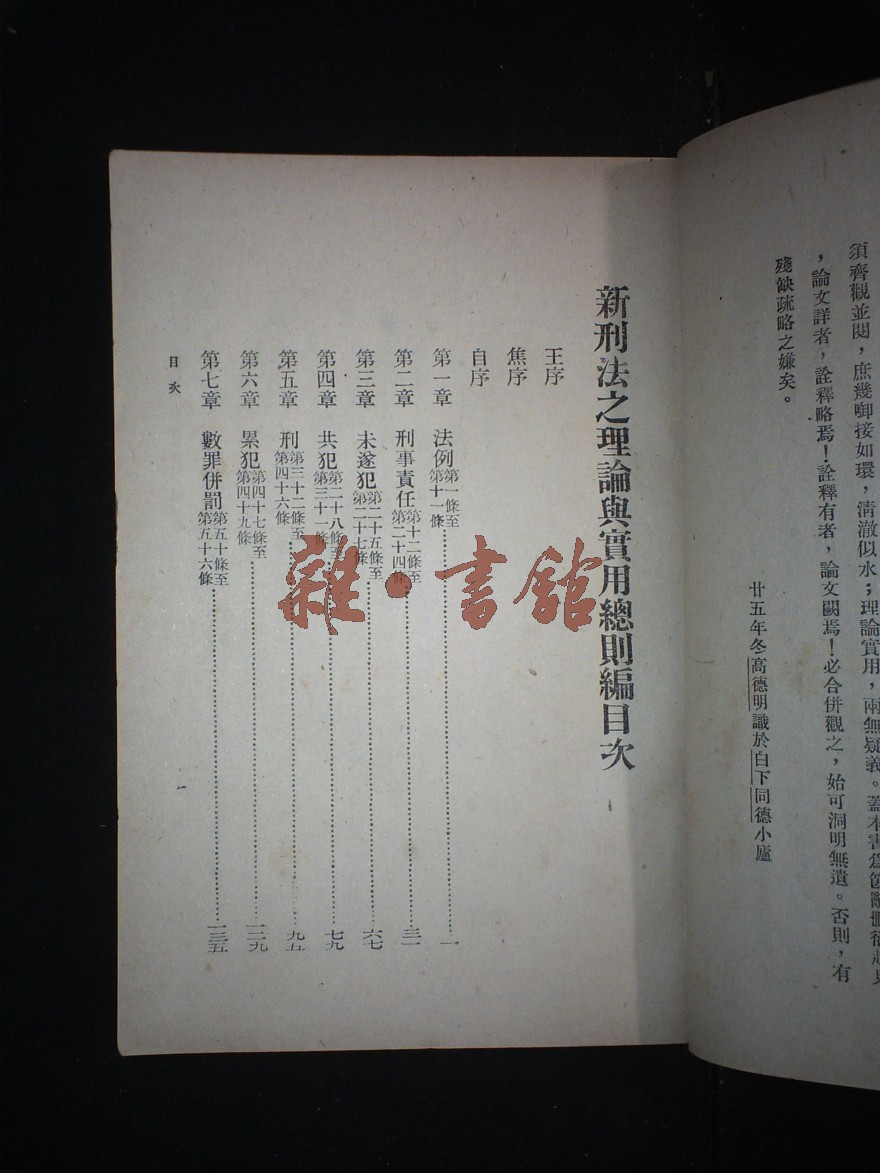 須齊觀並閱，庶幾啣接如環，清澈似水；理論實用，兩無疑義。蓋本書爲
，論文詳者，詮釋略焉！詮釋有者，論文闕焉！必合併觀之，始可洞明無遺。否則，有
殘缺疏略之嫌矣。
廿五年冬高德明識於白下同德小廬
新刑法之理論與實用總則編目次
王序
焦序
自序
第一章 法例第一條至第十一條……一
第二章 刑事責任第十二條至第二十四條……三一
第三章 未遂犯第二十五條至第二十七條……六七
第四章 共犯第二十八條至第三十一條……七九
第五章 刑第三十二條至第四十六條……九五
第六章 累犯第四十七條至第四十九條……一二九
第七章 數罪併罰第五十條至第五十六條……一三五
目次
一
雜·書館